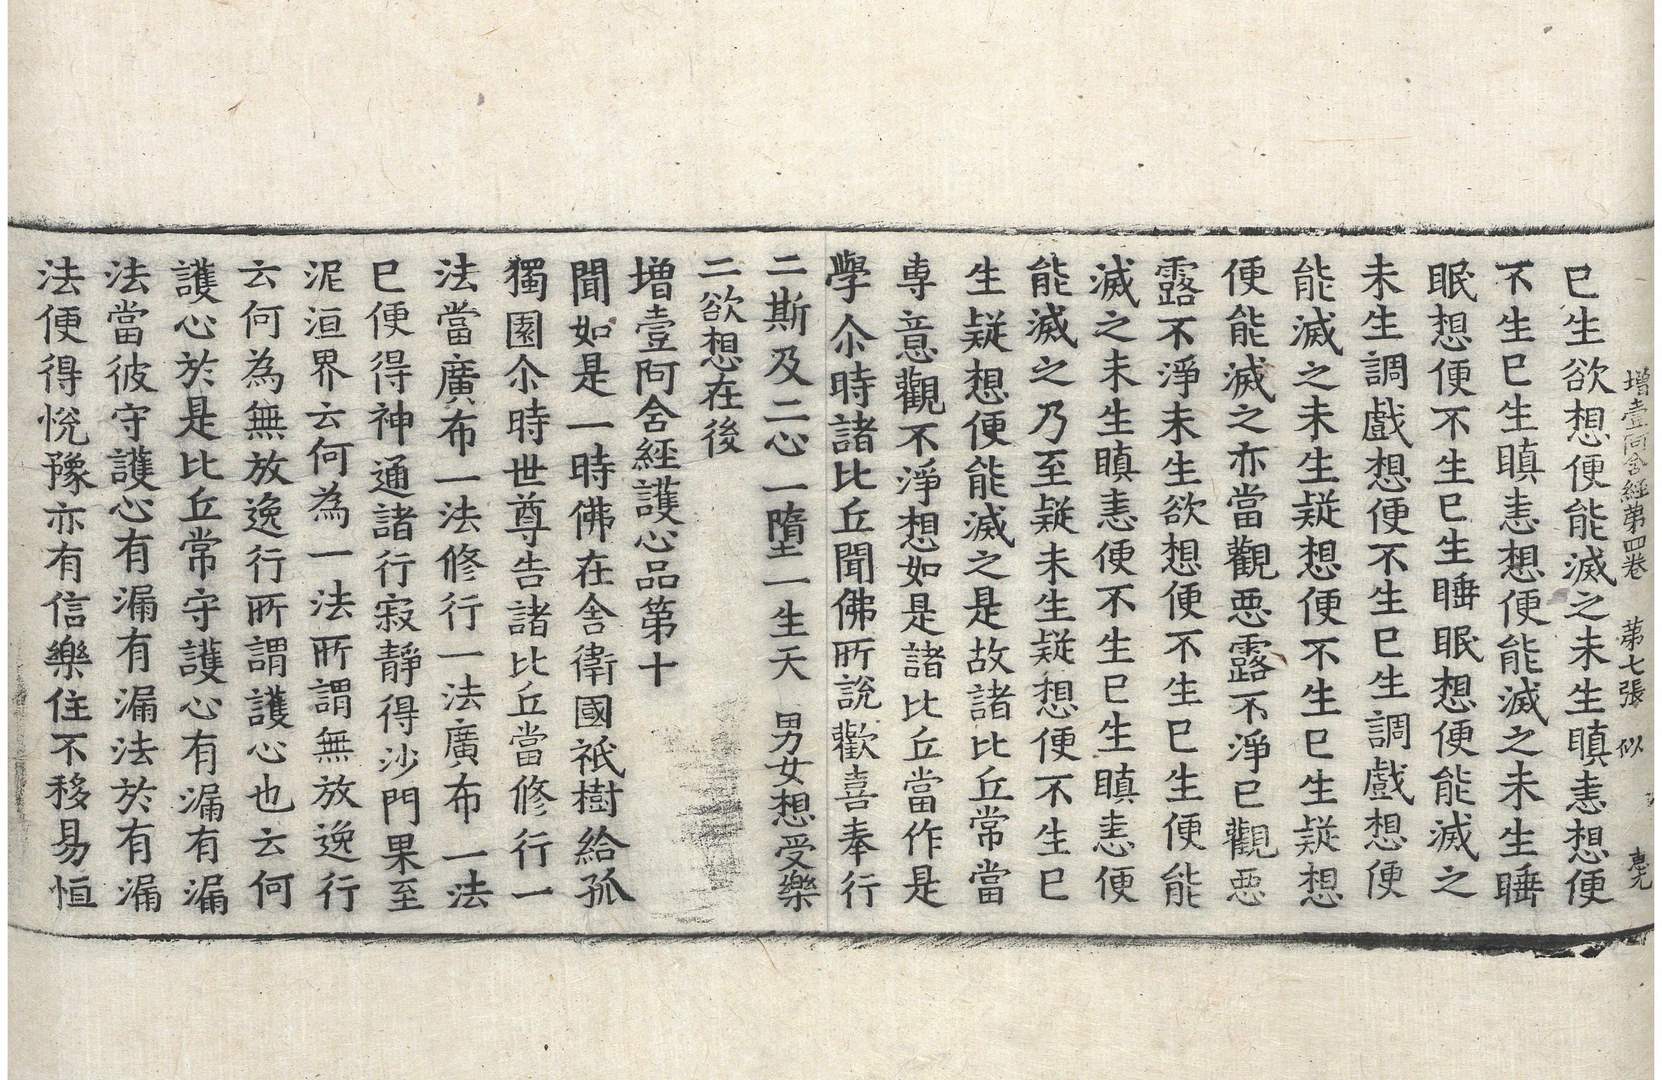 增壹阿含經第四卷 第七張 似
已生欲想便能滅之未生瞋恚想便
不生已生瞋恚想便能滅之未生睡
眠想便不生已生睡眠想便能滅之
未生調戲想便不生已生調戲想便
能滅之未生疑想便不生已生疑想
便能滅之亦當觀惡露不淨已觀惡
露不淨未生欲想便不生已生便能
滅之未生瞋恚便不生已生瞋恚便
能滅之乃至疑未生疑想便不生已
生疑想便能滅之是故諸比丘常當
專意觀不淨想如是諸比丘當作是
學尒時諸比丘聞佛所說歡喜奉行
二斯及二心一墮一生天 男女想受樂
二欲想在後
增壹阿含經護心品第十
聞如是一時佛在舍衛國祇樹給孤
獨園尒時世尊告諸比丘當修行一
法當廣布一法修行一法廣布一法
已便得神通諸行寂靜得沙門果至
泥洹界云何為一法所謂無放逸行
云何為無放逸行所謂護心也云何
護心於是比丘常守護心有漏有漏
法當彼守護心有漏有漏法於有漏
法便得悅豫亦有信樂住不移易恒